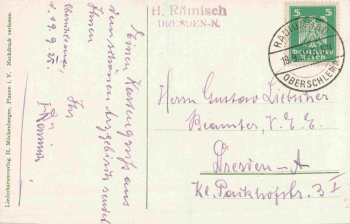 H. Rämisch
DRESDEN-N.
5 5
Deutsches
Reich
RADIUM
OBERSCHLEMA
Einen Kartengruß aus
dem schönen Erzgebirge sendet
Ihnen
Ihr
Oberschlema,
d. 19.9.25.
Herrn Gustav Liebscher
Beamter,
Dresden-A
Kl. Packhofstr. 3 I
Liederkartenverlag H. Mückenberger, Plauen i. V. Nachdruck verboten.